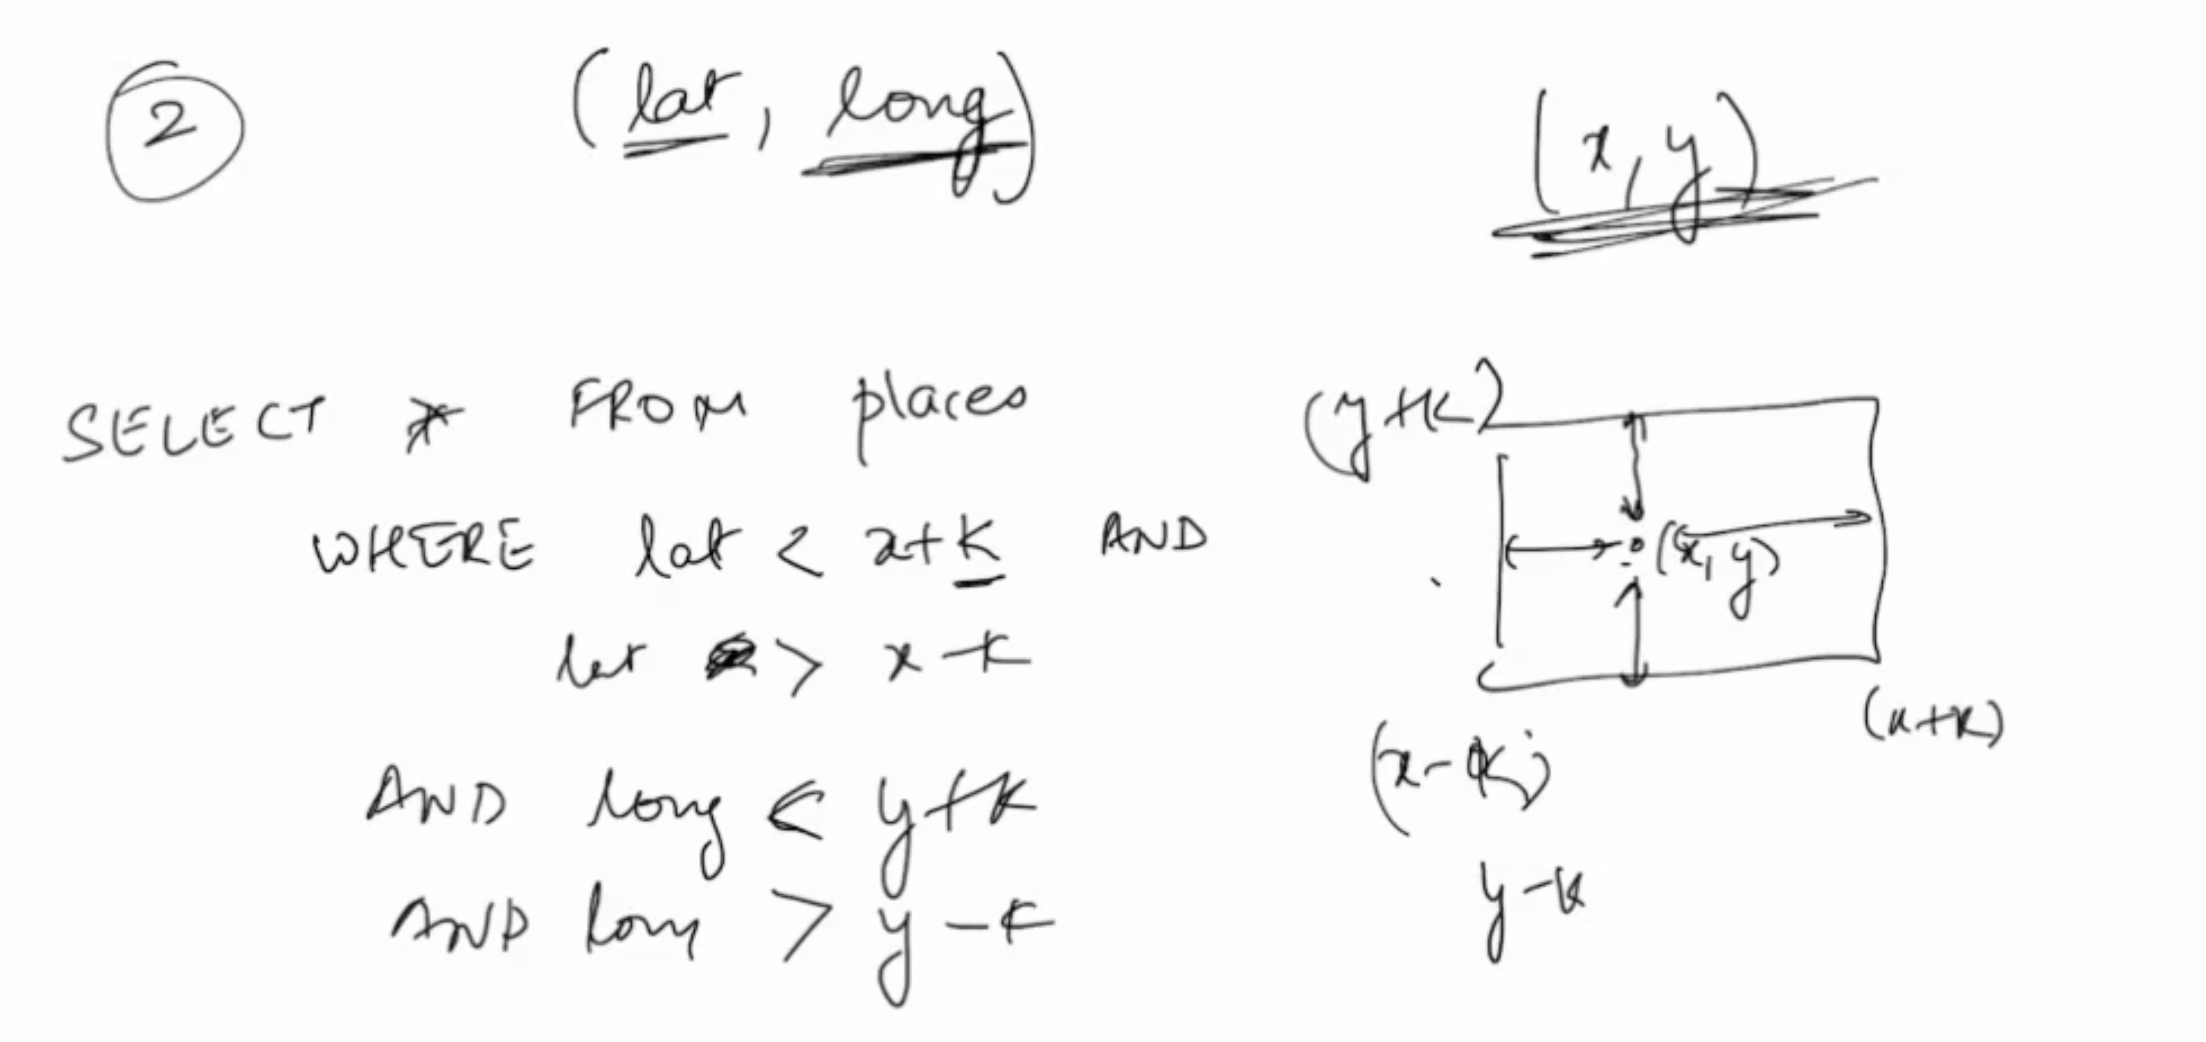 2
(lat, long)
(x, y)
SELECT * FROM places
WHERE lat < x+k AND
lat > x-k
AND long < y+k
AND long > y-k
(y+k)
(x, y)
(x+k)
(x-k)
y-k